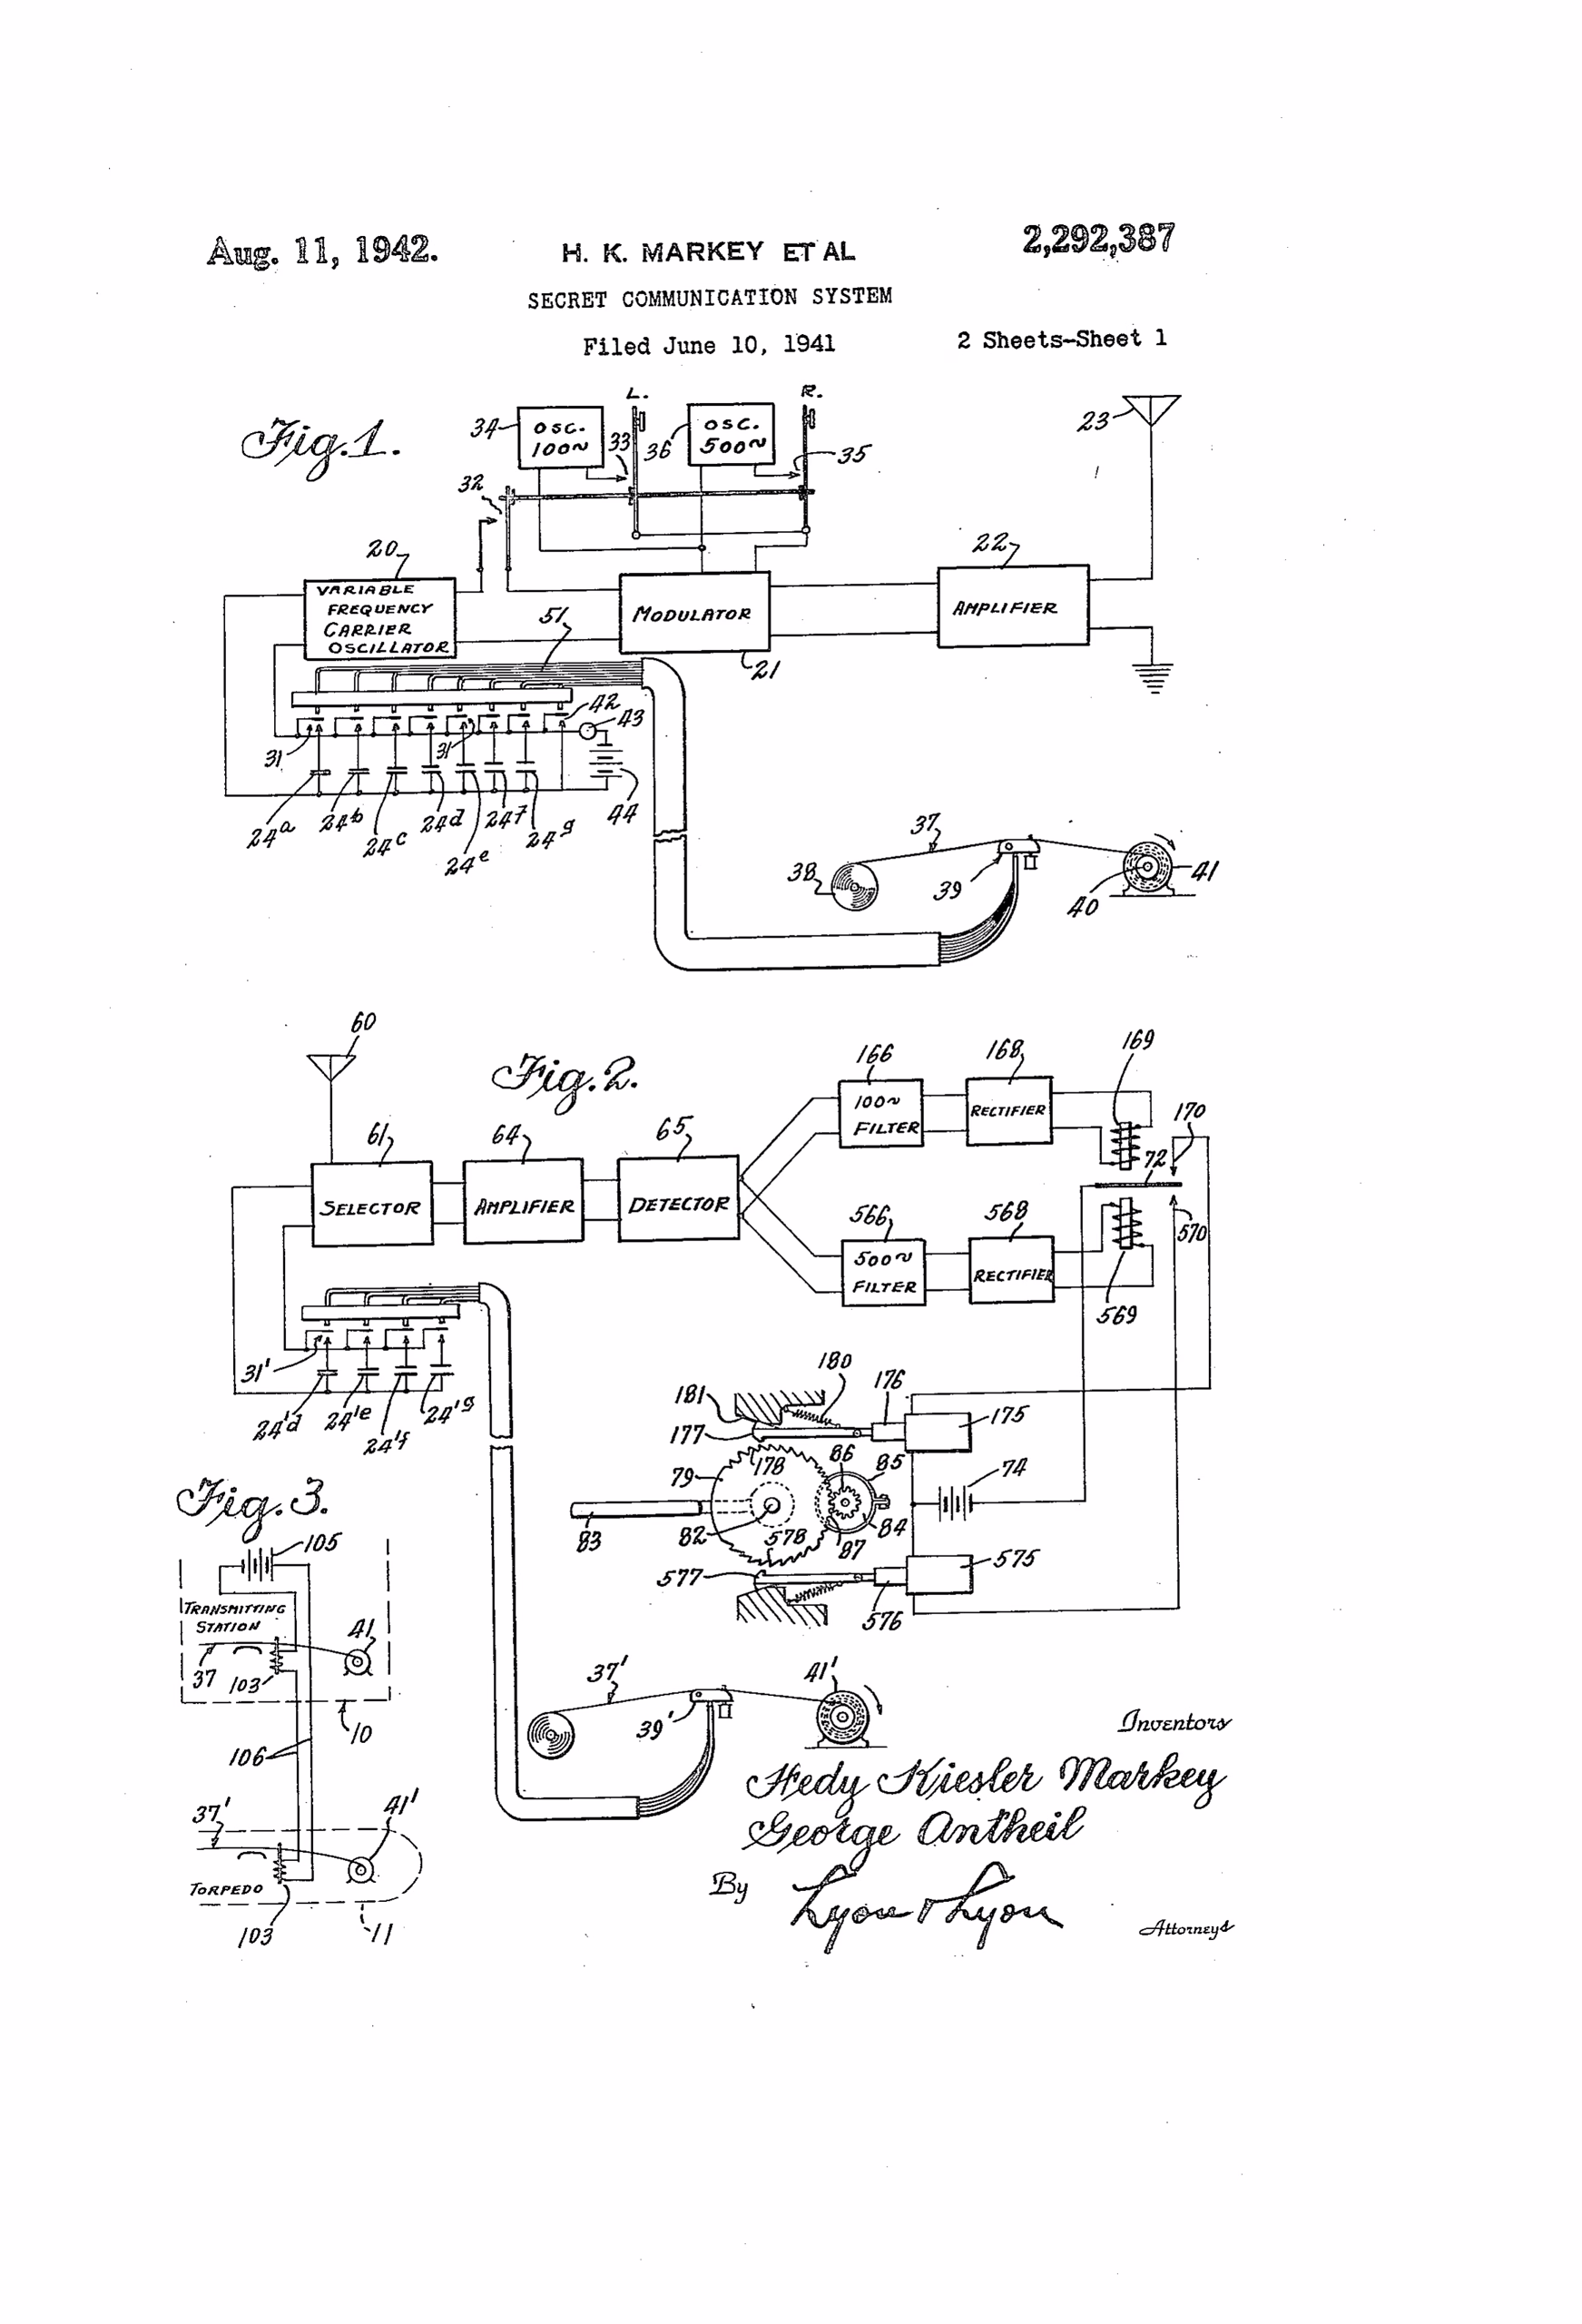 Aug. 11, 1942.
H. K. MARKEY ET AL
2,292,387
SECRET COMMUNICATION SYSTEM
Filed June 10, 1941
2 Sheets-Sheet 1
Fig.1.
L.
R.
34
OSC.
100~
33
36
OSC.
500~
35
23
32
20
VARIABLE
FREQUENCY
CARRIER
OSCILLATOR
51
MODULATOR
21
22
AMPLIFIER
42
43
31
31
44
24a
24b
24c
24d
24e
24f
24g
37
38
39
40
41
Fig.2.
60
61
SELECTOR
64
AMPLIFIER
65
DETECTOR
166
100~
FILTER
168
RECTIFIER
169
170
72
566
500~
FILTER
568
RECTIFIER
569
570
31'
24'd
24'e
24'f
24'g
180
181
176
175
177
178
79
86
85
74
83
82
578
87
84
577
576
575
37'
39'
41'
Fig.3.
105
TRANSMITTING
STATION
41
37
103
10
106
37'
41'
TORPEDO
103
11
Inventors
Hedy Kiesler Markey
George Antheil
By
Lyon & Lyon
Attorneys